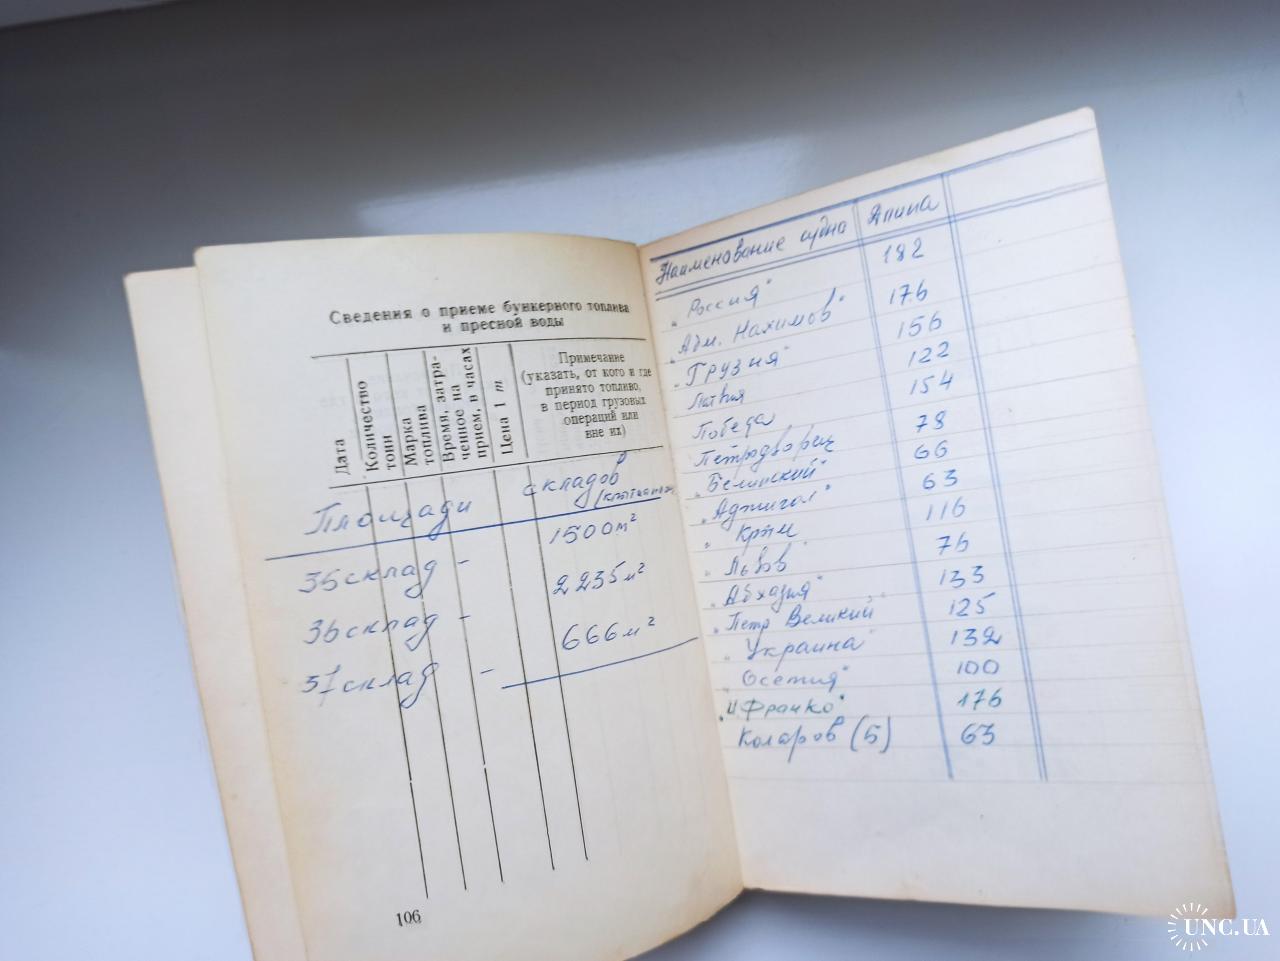 Сведения о приеме бункерного топлива
и пресной воды
Дата
Количество
тонн
Марка
топлива
Время, затра-
ченное на
прием, в часах
Цена 1 т
Примечание
(указать, от кого и где
принято топливо,
в период грузовых
операций или
вне их)
Площади складов
1500 м²
35 склад -
2235 м²
36 склад -
666 м²
37 склад -
106
Наименование судна Длина
„Россия" 182
„Адм. Нахимов" 176
„Грузия" 156
Латвия 122
Победа 154
Петродворец 78
„Белинский" 66
„Аджигол" 63
„Крым 116
„Львов" 76
„Абхазия" 133
„Петр Великий" 125
„Украина" 132
„Осетия" 100
„И Франко" 176
Коларов (5) 63
UNC.UA